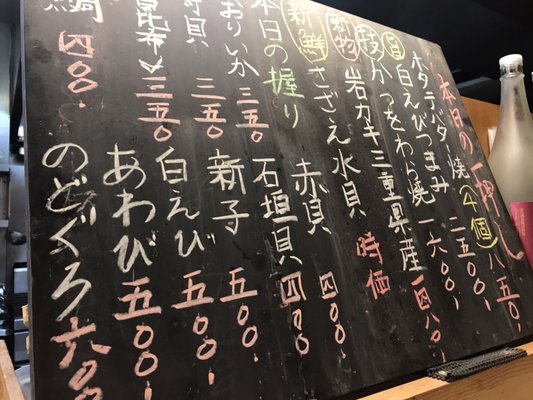 本日の一押し
ホタテバター焼(4個) 八五〇
白えびつまみ 二五〇〇
かつをわら焼 一六〇〇
新物 岩カキ三重県産 一四八〇
新鮮 さざえ水貝 時価
本日の握り
赤貝 四〇〇
石垣貝 四〇〇
おりいか 三五〇
新子 五〇〇
貝 三五〇
白えび 五〇〇
昆布〆 三五〇
あわび 五〇〇
四〇〇
のどぐろ 六〇〇